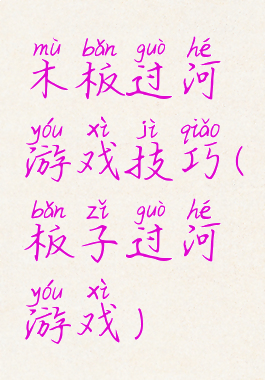 mù bǎn guò hé
木板过河
yóu xì jì qiǎo
游戏技巧(
bǎn zǐ guò hé
板子过河
yóu xì
游戏)